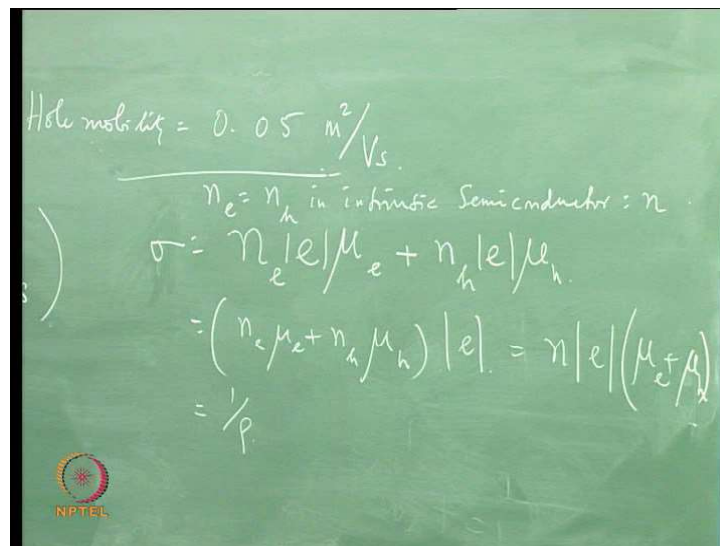 Hole mobility = 0.05 m²/Vs.
nₑ = nₕ in intrinsic Semiconductor = n.
s)
σ = nₑ|e|μₑ + nₕ|e|μₕ.
= (nₑμₑ + nₕμₕ)|e|. = n|e|(μₑ+μₕ)
= 1/ρ.
NPTEL